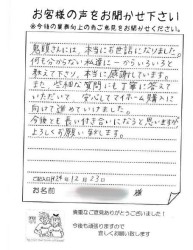 お客様の声をお聞かせ下さい
※今後の業務向上の為ご意見をお聞かせください。
さんには、本当にお世話になりました。
何も分からない私達に一からいろいろと
教えて下さり、本当に感謝しています。
また、些細な質問にも丁寧に答えて
いただいて、安心してマイホーム購入に
向けて進めていけました。
今後とも長い付き合いになると思いますが
よろしくお願い致します。
24年12月23日
お名前
様
貴重なご意見ありがとうございました！
今後も頑張りますので
宜しくお願い致します